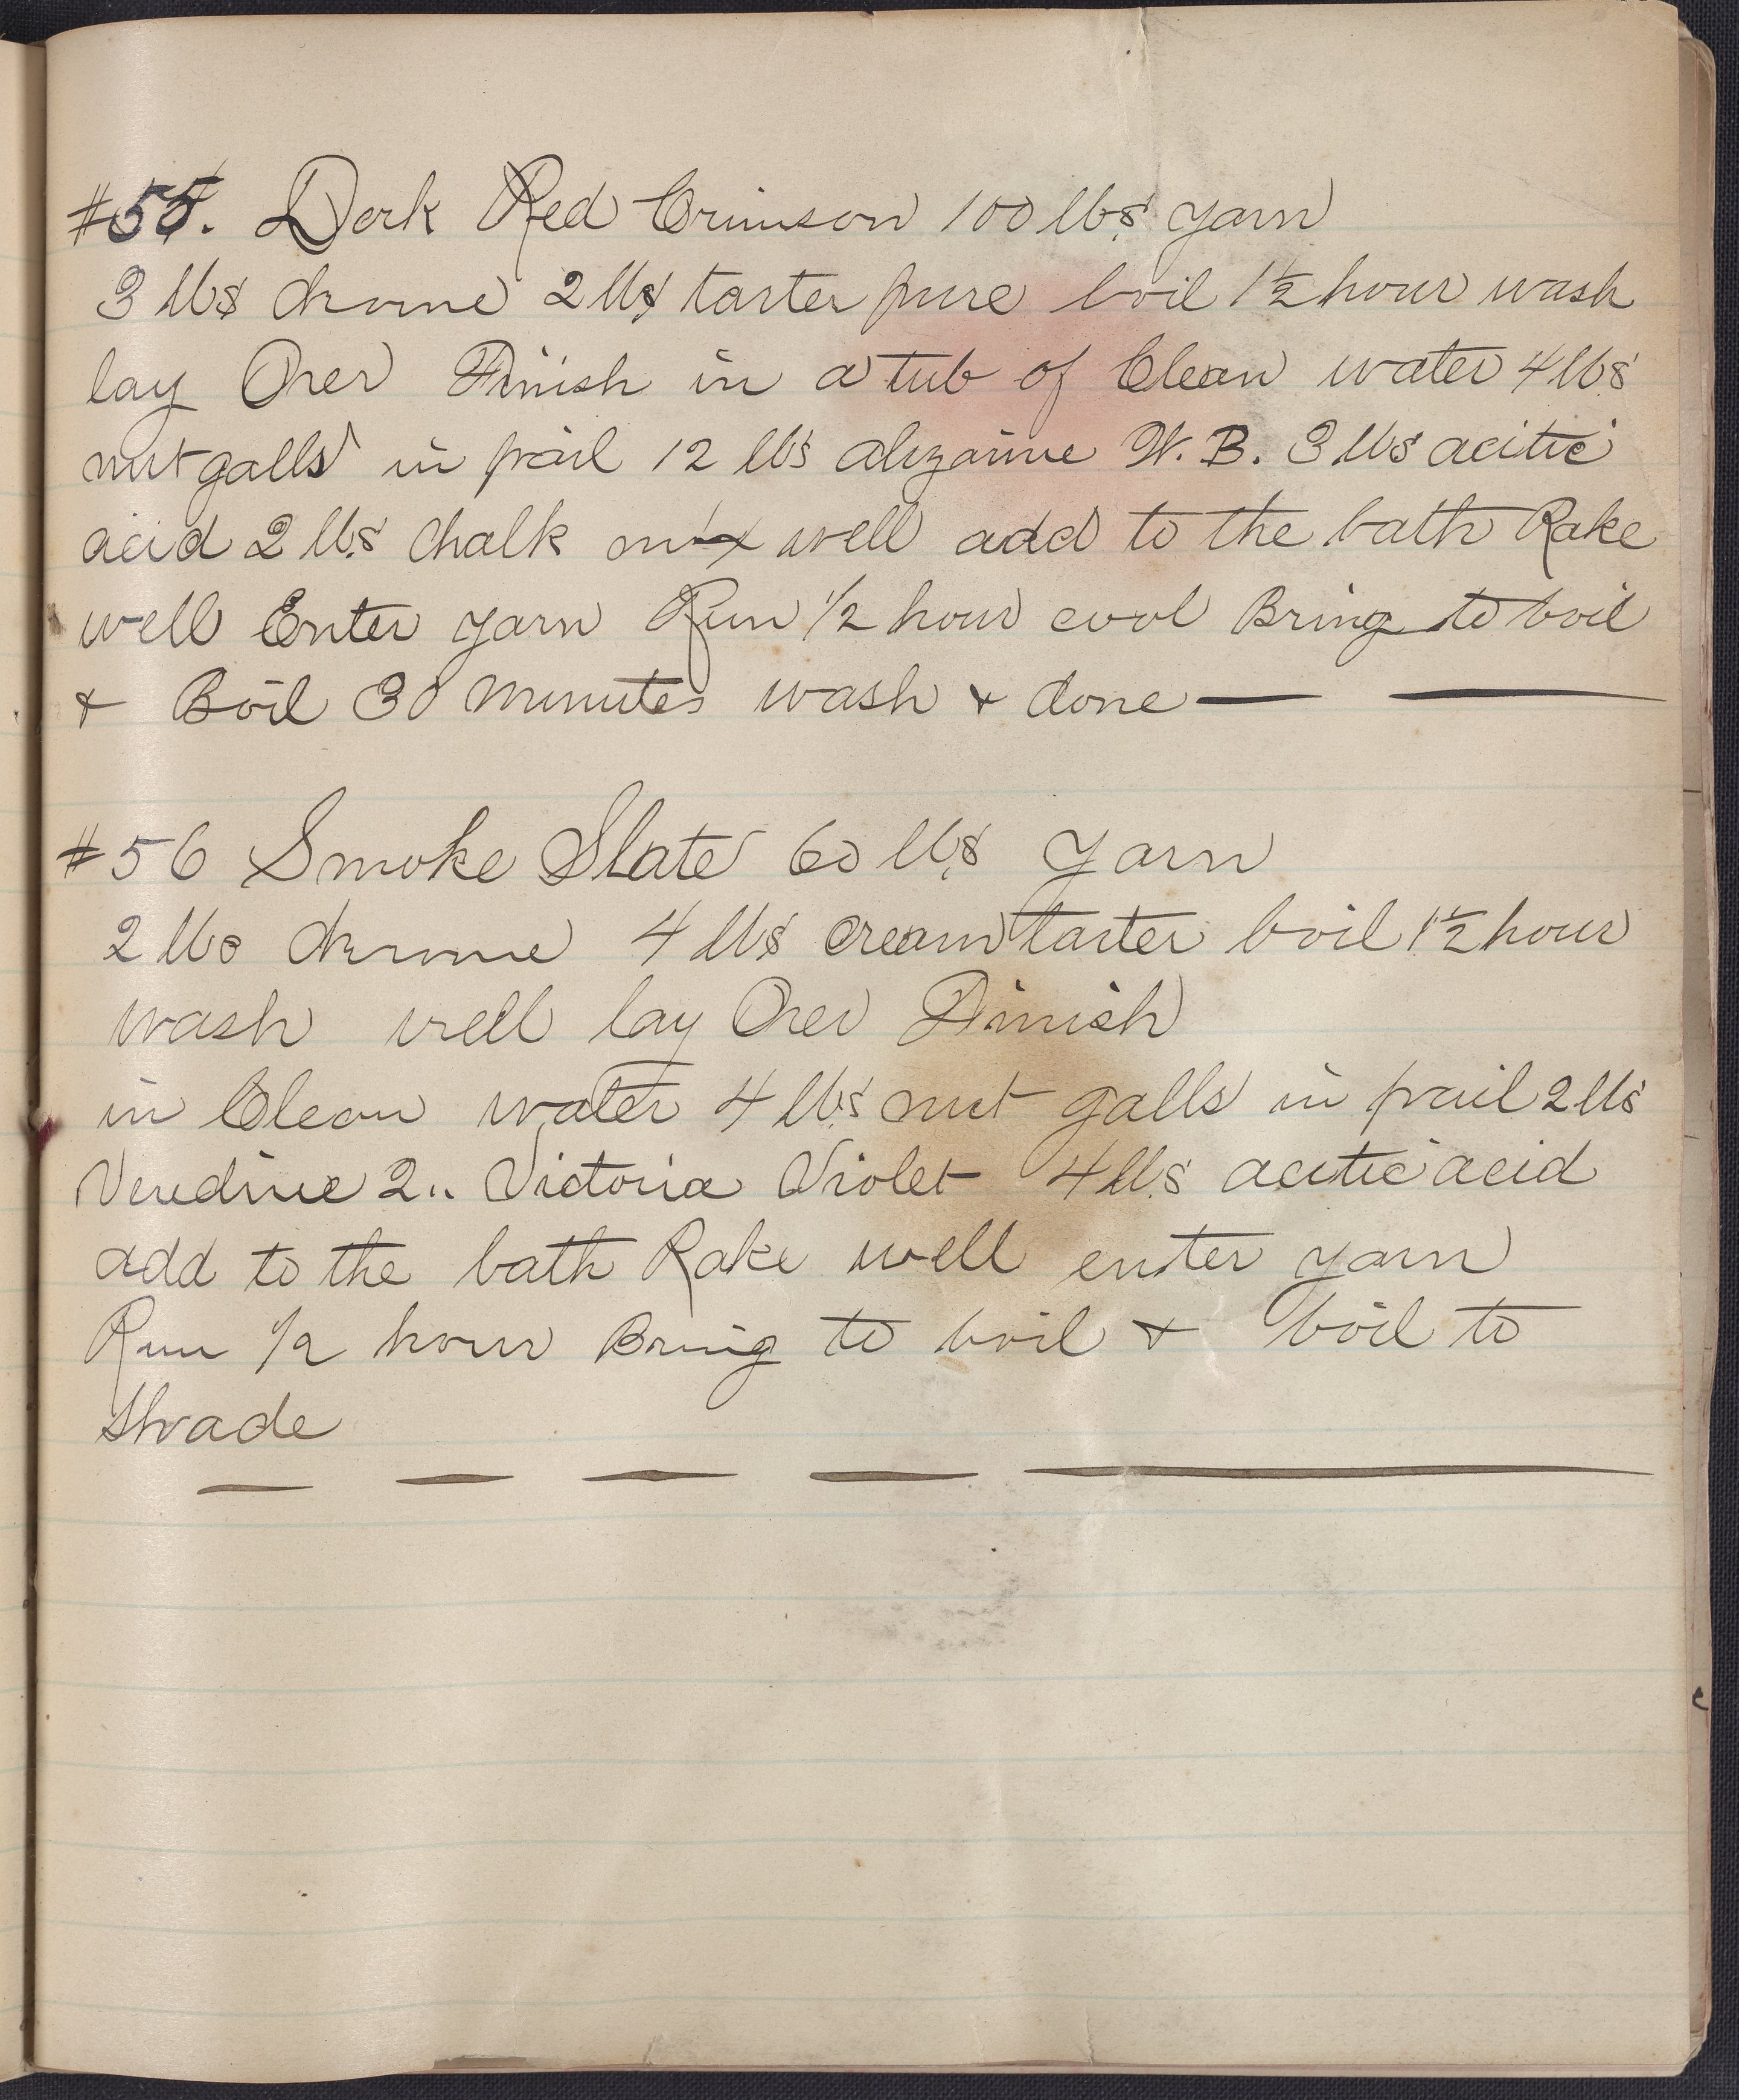 #55. Dark Red Crimson 100 lbs yarn
3 lbs chrome 2 lbs tarter pure boil 1½ hour wash
lay Over Finish in a tub of Clean water 4 lbs
nut galls in pail 12 lbs alizarine W. B. 3 lbs acitic
acid 2 lbs Chalk mix well add to the bath Rake
well Enter yarn Run ½ hour cool Bring to boil
& Boil 30 Minutes wash & done —— ——
#56 Smoke Slate 60 lbs yarn
2 lbs chrome 4 lbs cream tarter boil 1½ hour
wash well lay Over Finish
in Clean water 4 lbs nut galls in pail 2 lbs
2 ,, Victoria Violet 4 lbs acitic acid
add to the bath Rake well enter yarn
Run ½ hour Bring to boil & boil to
Shade